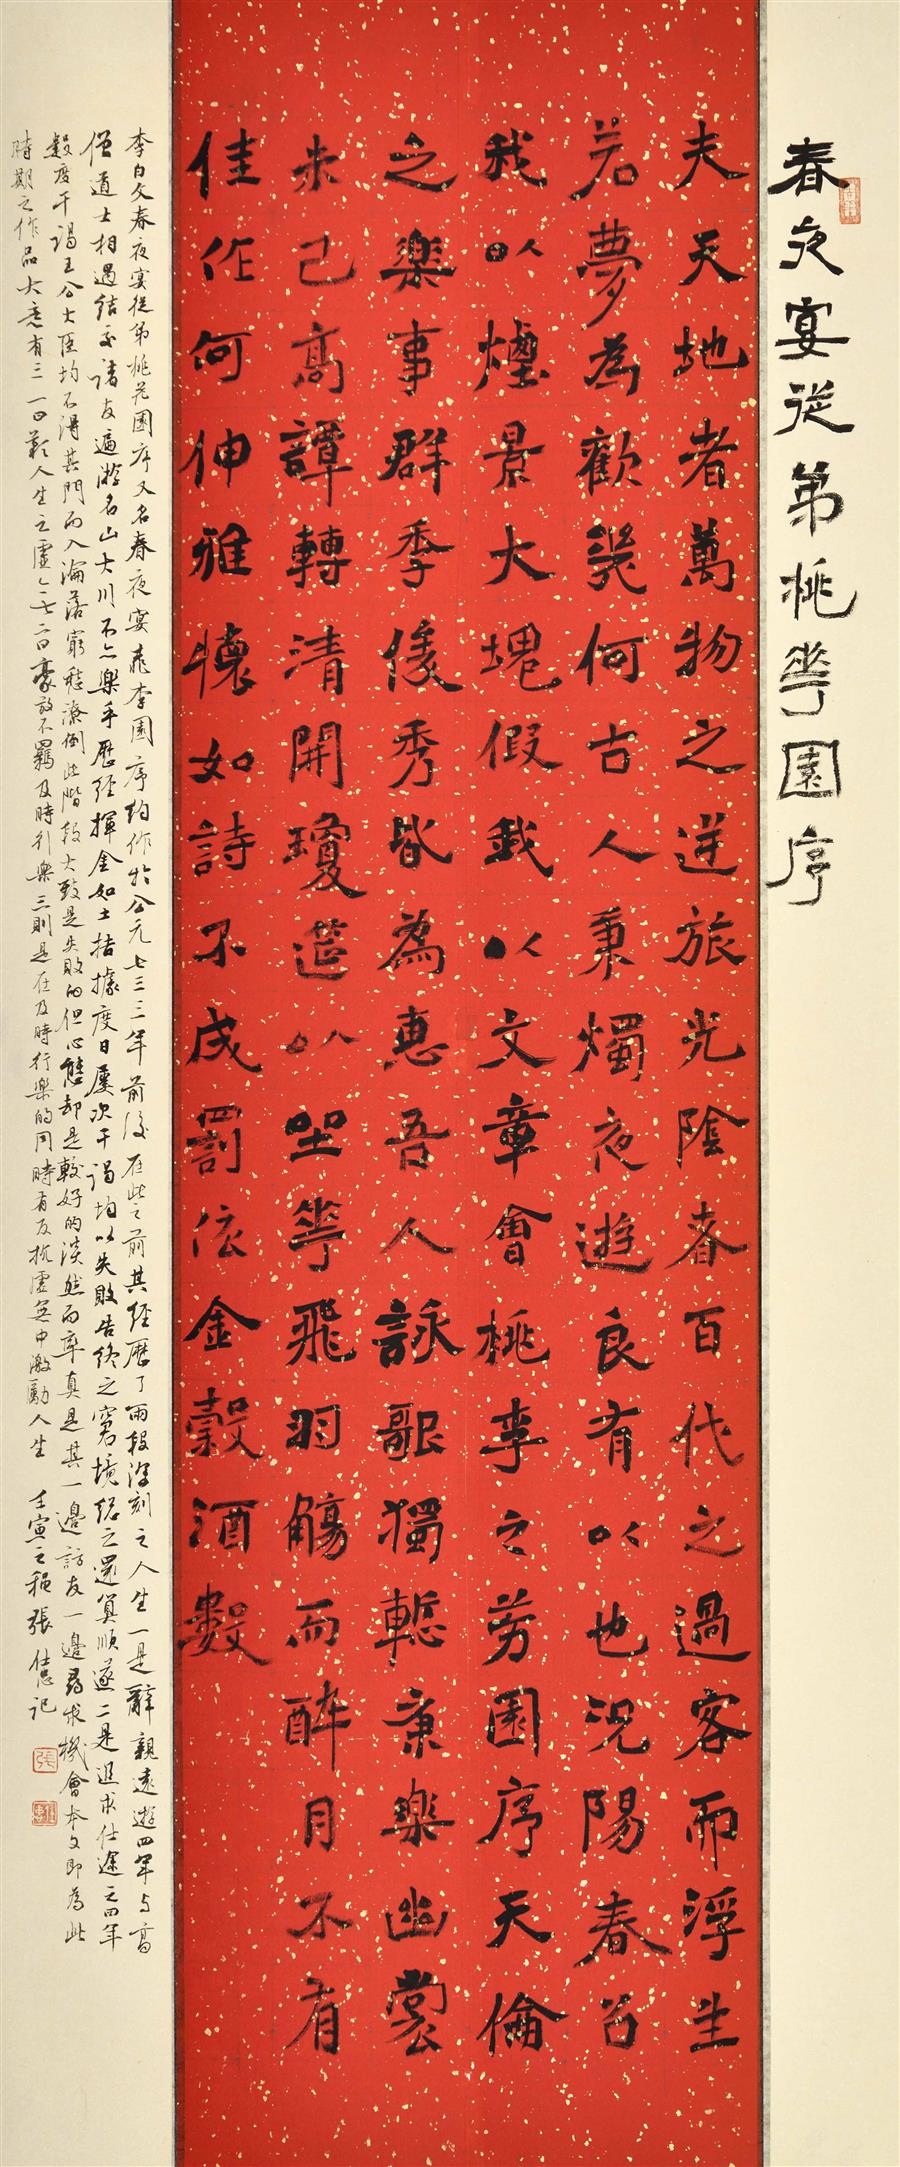 春夜宴從弟桃華園序
夫天地者萬物之逆旅光陰者百代之過客而浮生
若夢為歡幾何古人秉燭夜遊良有以也況陽春召
我以煙景大塊假我以文章會桃李之芳園序天倫
之樂事群季俊秀皆為惠吾人詠歌獨慙康樂幽賞
未已高譚轉清開瓊筵以坐華飛羽觴而醉月不有
佳作何伸雅懷如詩不成罰依金穀酒數
李白文春夜宴從弟桃花園序又名春夜宴桃李園序約作於公元七三三年前後在此之前其經歷了兩段深刻之人生一是辭親遠遊四年與高
僧道士相遇結交諸友遍游名山大川不亦樂乎歷經揮金如土拮據度日屢次干謁均以失敗告終之窘境總之還算順遂二是追求仕途之四年
數度干謁王公大臣均不得其門而入淪落窮愁潦倒此階段大致是失敗的但心態却是較好的淡然而率真是其一邊訪友一邊尋求機會本文即為此
時期之作品大意有三一曰嘆人生之虛無二曰豪放不羈及時行樂三則是在及時行樂的同時有反抗虛無中激勵人生 壬寅之穐張仕憲記